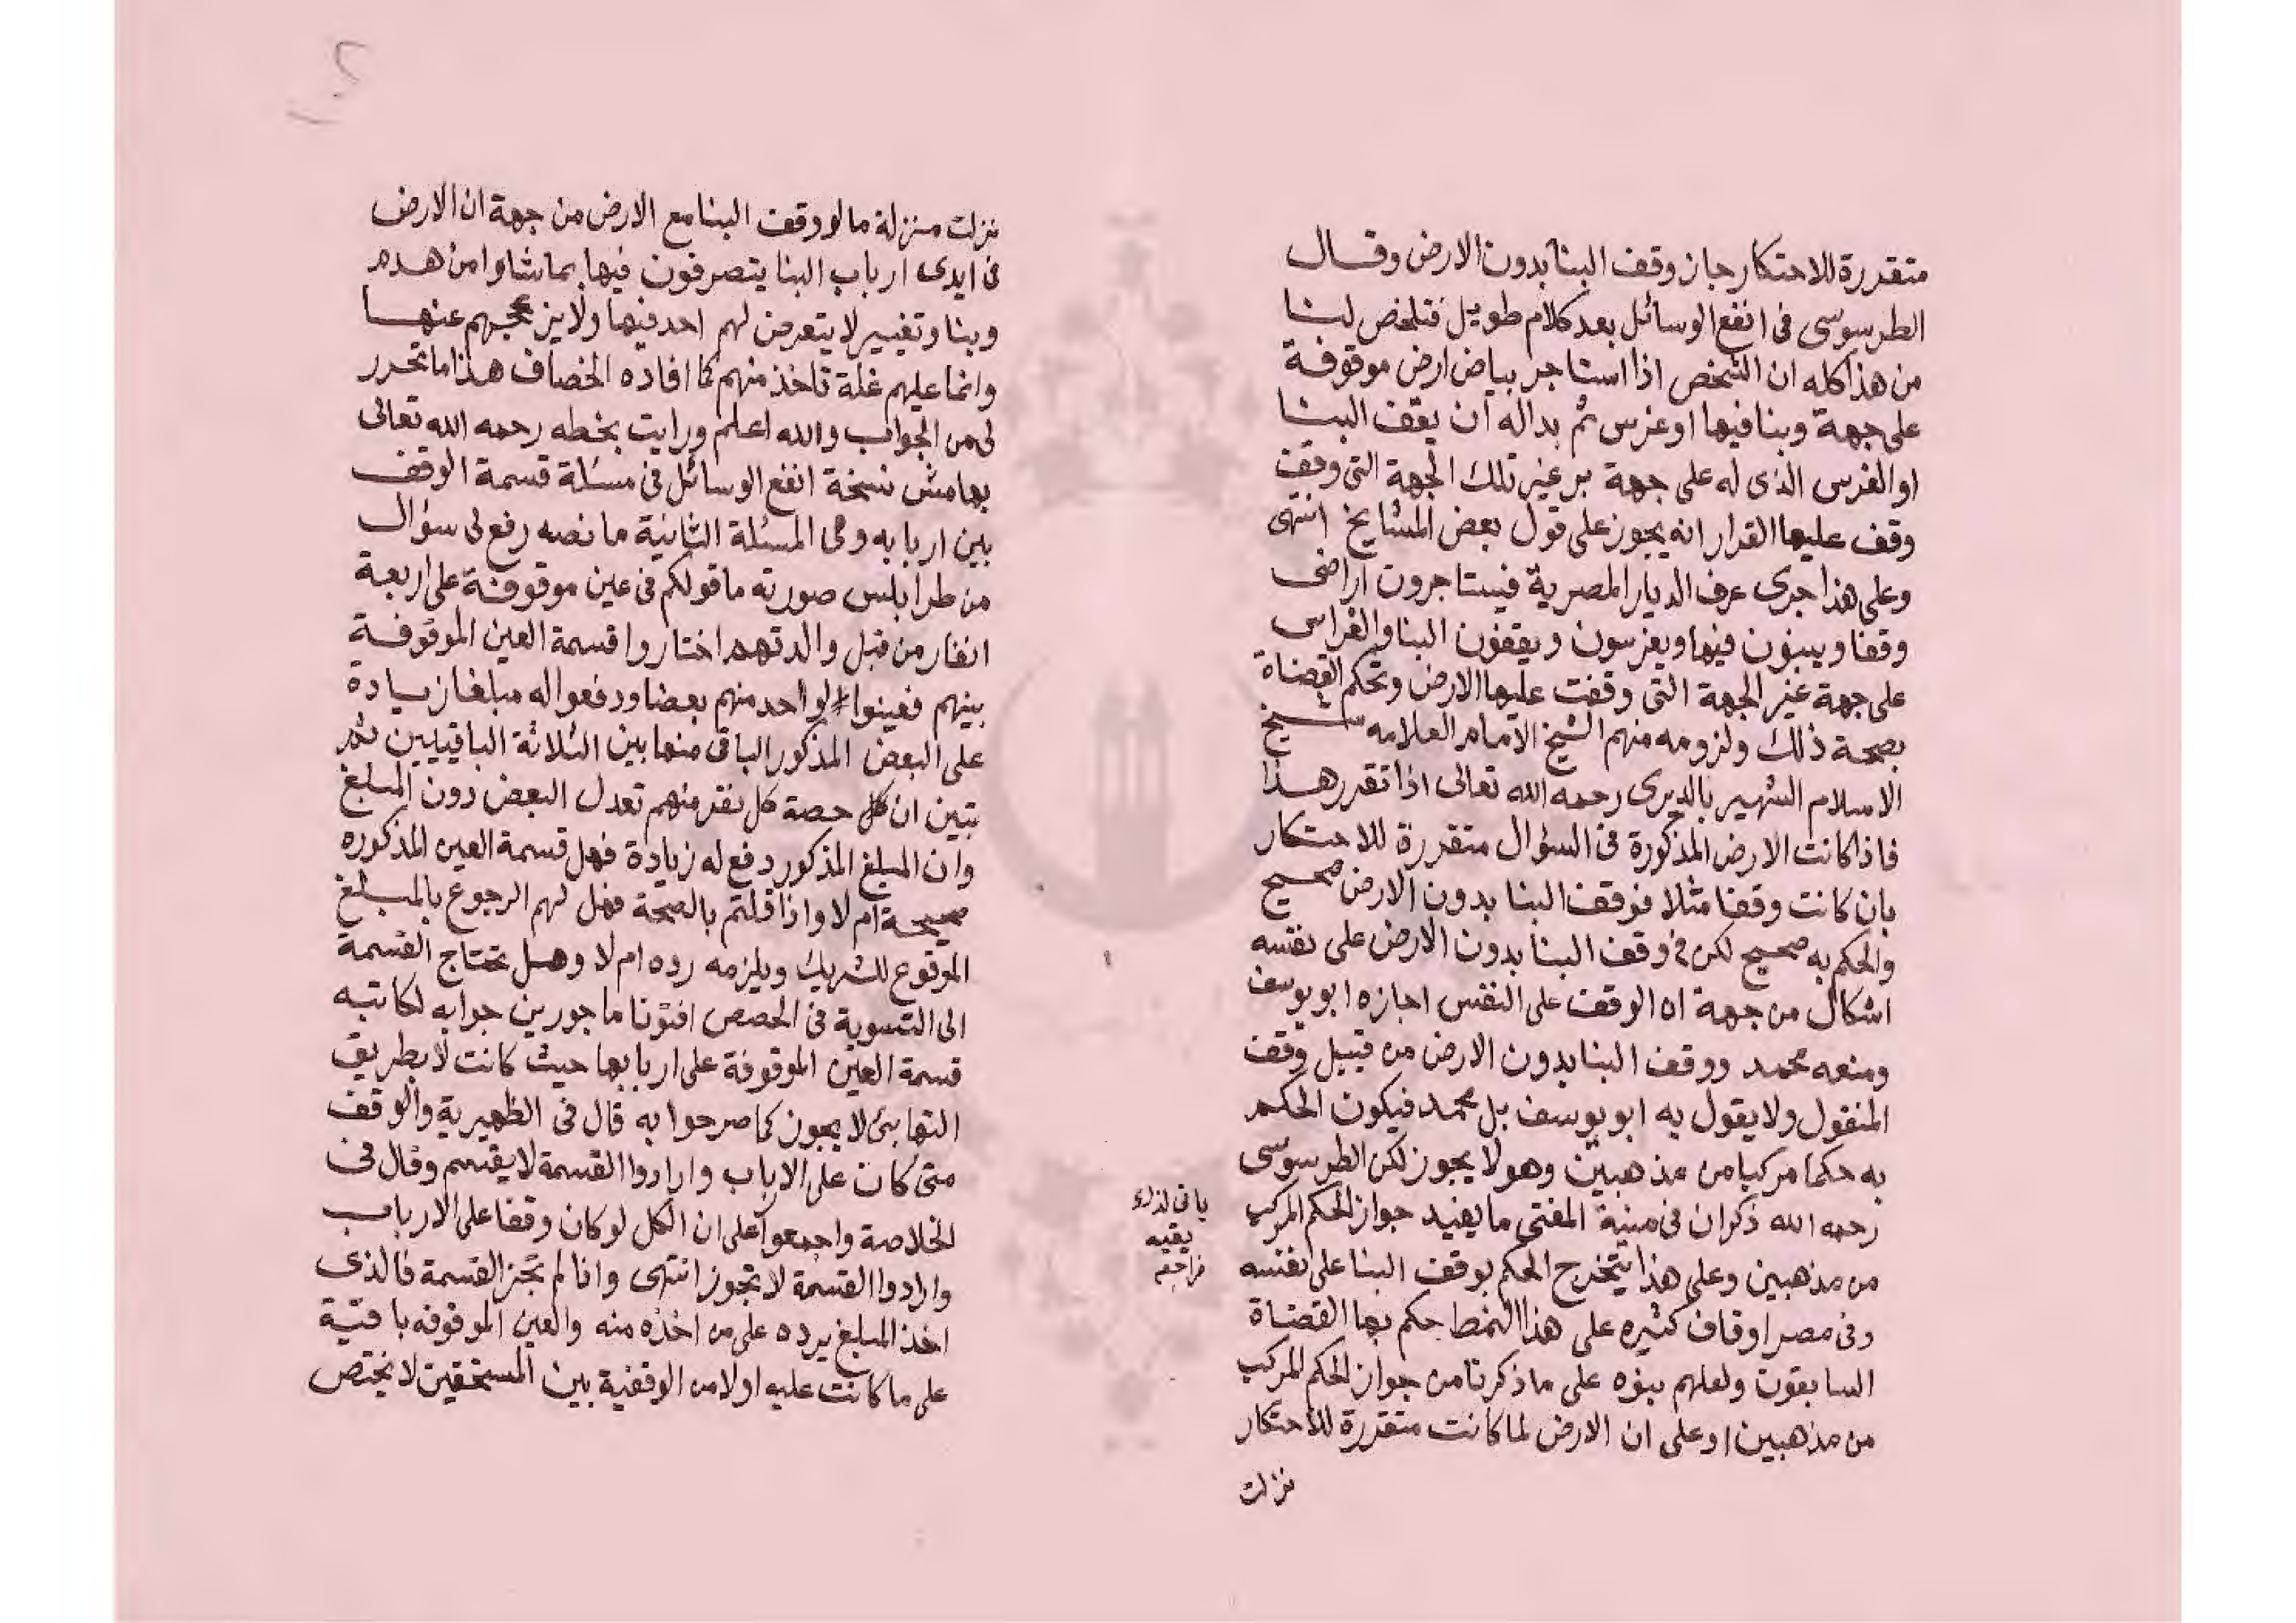 متقررة للاحتكار جاز وقف البنا بدون الارض وقال
الطرسوسى فى انفع الوسائل بعد كلام طويل فتلخص لنا
من هذا كله ان الشخص اذا استاجر بياض ارض موقوفة
على جهة وبنا فيها او غرس ثم بداله أن يقف البنا
او الغرس الذى له على جهة بر غير تلك الجهة التى وقف
وقف عليها القرار انه يجوز على قول بعض المشايخ انتهى
وعلى هذا جرى عرف الديار المصرية فيستاجرون اراضى
وقفا ويبنون فيها ويغرسون ويقفون البنا والغراس
على جهة غير الجهة التى وقفت عليها الارض وتحكم القضاة
بصحة ذلك ولزومه منهم الشيخ الامام العلامه شيخ
الاسلام الشهير بالديرى رحمه الله تعالى اذا تقرر هذا
فاذا كانت الارض المذكورة فى السؤال متقررة للاحتكار
بان كانت وقفا مثلا فوقف البنا بدون الارض صحيح
والحكم به صحيح لكن فى وقف البنا بدون الارض على نفسه
اشكال من جهة ان الوقف على النفس اجازه ابو يوسف
ومنعه محمد ووقف البنا بدون الارض من قبيل وقف
المنقول ولا يقول به ابو يوسف بل محمد فيكون الحكم
به حكما مركبا من مذهبين وهو لا يجوز لكن الطرسوسى
رحمه الله ذكر ان فى منية المفتى ما يفيد جواز الحكم المركب
من مذهبين وعلى هذا يتخرج الحكم بوقف البنا على نفسه
وفى مصر اوقاف كثيره على هذا النمط حكم بها القضاة
السابقون ولعلهم بنوه على ما ذكرنا من جواز الحكم المركب
من مذهبين او على ان الارض لما كانت متقررة للاحتكار
نزلت
نزلت منزلة ما لو وقف البنا مع الارض من جهة ان الارض
فى ايدى ارباب البنا يتصرفون فيها بما شاوا من هدم
وبنا وتغيير لا يتعرض لهم احد فيها ولا يزعجهم عنها
وانما عليهم غلة تاخذ منهم كما افاده الخصاف هذا ما تحرر
لى من الجواب والله اعلم ورايت بخطه رحمه الله تعالى
بهامش نسخة انفع الوسائل فى مسئلة قسمة الوقف
بين اربابه وهى المسئلة الثانية ما نصه رفع لى سؤال
من طرابلس صورته ما قولكم فى عين موقوفة على اربعة
انفار من قبل والدتهم اختاروا قسمة العين الموقوفة
بينهم فعينوا لواحد منهم بعضا ودفعوا له مبلغا زيادة
على البعض المذكور الباقى منها بين الثلاثة الباقيين ثم
تبين ان كل حصة كل نفر منهم تعدل البعض دون المبلغ
وان المبلغ المذكور دفع له زيادة فهل قسمة العين المذكوره
صحيحة ام لا واذا قلتم بالصحة فهل لهم الرجوع بالمبلغ
الموقوع للشريك ويلزمه رده ام لا وهل تحتاج القسمة
الى التسوية فى الحصص افتونا ماجورين جوابه لكاتبه
قسمة العين الموقوفة على اربابها حيث كانت لا بطريق
التهايئ لا يجوز كما صرحوا به قال فى الظهيرية والوقف
متى كان على الارباب وارادوا القسمة لا يقسم وقال فى
الخلاصة واجمعوا على ان الكل لو كان وقفا على الارباب
وارادوا القسمة لا تجوز انتهى واذا لم تجز القسمة فالذى
اخذ المبلغ يرده على من اخذه منه والعين الموقوفه باقية
على ما كانت عليه اولا من الوقفية بين المستحقين لا يختص